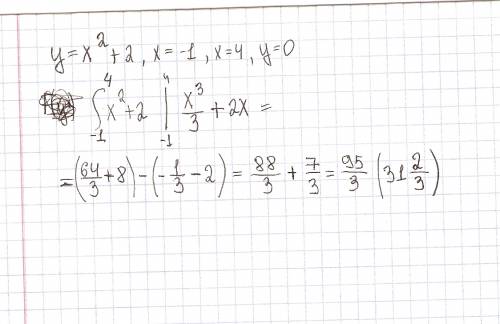 y = x² + 2 , x = -1 , x = 4 , y = 0
∫₋₁⁴ x² + 2 |₋₁⁴ x³/3 + 2x =
= (64/3 + 8) - (-1/3 - 2) = 88/3 + 7/3 = 95/3 (31 2/3)